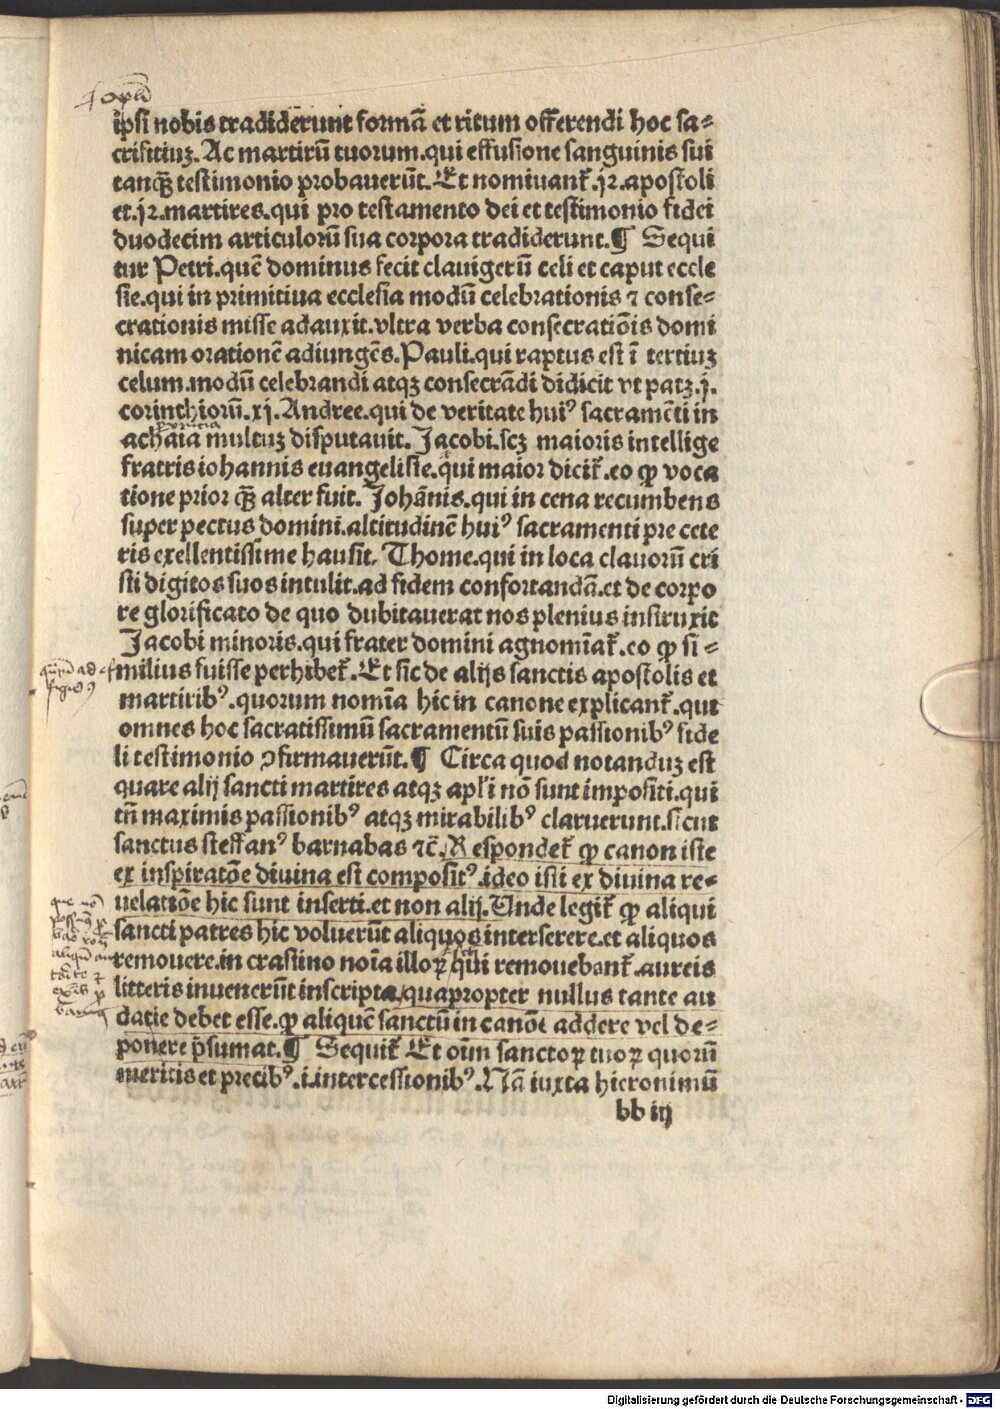 ipsi nobis tradiderunt formā et ritum offerendi hoc sa⸗
crifitiuꝫ. Ac martirū tuorum.qui effusione sanguinis sui
tanqꝫ̄ testimonio probauerūt. Et nomiuant᷑.j2.apostoli
et.j2.martires.qui pro testamento dei et testimonio fidei
duodecim articulorū sua corpora tradiderunt.¶ Sequi
tur Petri.quē dominus fecit clauigerū celi et caput eccle
sie.qui in primitiua ecclesia modū celebrationis ⁊ conse⸗
crationis misse adauxit.vltra verba consecratiōis domi
nicam orationē adiungēs.Pauli.qui raptus est ī tertiuꝫ
celum.modū celebrandi atqꝫ consecrādi didicit vt patꝫ.j.
corinthiorū.xj.Andree.qui de veritate huiꝰ sacramēti in
achaia multuꝫ disputauit. Jacobi.scꝫ maioris intellige
fratris iohannis euangeliste.qui maior dicit᷑.eo ꝙ voca
tione prior qꝫ̄ alter fuit. Johānis.qui in cena recumbens
super pectus domini.altitudinē huiꝰ sacramenti pre cete
ris exellentissime hausit. Thome.qui in loca clauorū cri
sti digitos suos intulit.ad fidem confortandā.et de corpo
re glorificato de quo dubitauerat nos plenius instruxit
Jacobi minoris.qui frater domini agnomīat᷑.eo ꝙ si⸗
milius fuisse perhibet᷑. Et sic de alijs sanctis apostolis et
martiribꝰ.quorum nomīa hic in canone explicant᷑.qui
omnes hoc sacratissimū sacramentū suis passionibꝰ fide
li testimonio ꝯfirmauerūt.¶ Circa quod notanduꝫ est
quare alij sancti martires atqꝫ apłi nō sunt impositi.qui
tn̄ maximis passionibꝰ atqꝫ mirabilibꝰ claruerunt.sicut
sanctus steffanꝰ barnabas ⁊c̄. Respondet᷑ ꝙ canon iste
ex inspiratōe diuina est compositꝰ.ideo isti ex diuina re⸗
uelatiōe hic sunt inserti.et non alij.Unde legit᷑ ꝙ aliqui
sancti patres hic voluerūt aliquos interserere.et aliquos
remouere.in crastino noīa illoꝝ qui remouebant᷑.aureis
litteris inuenerūt inscripta,quapropter nullus tante au
datie debet esse.ꝙ aliquē sanctū in canōe addere vel de⸗
ponere p̄sumat.¶ Sequit᷑ Et oīm sanctoꝝ tuoꝝ quorū
meritis et precibꝰ.i.intercessionibꝰ.Nā iuxta hieronimū
bb iij
Digitalisierung gefördert durch die Deutsche Forschungsgemeinschaft - DFG